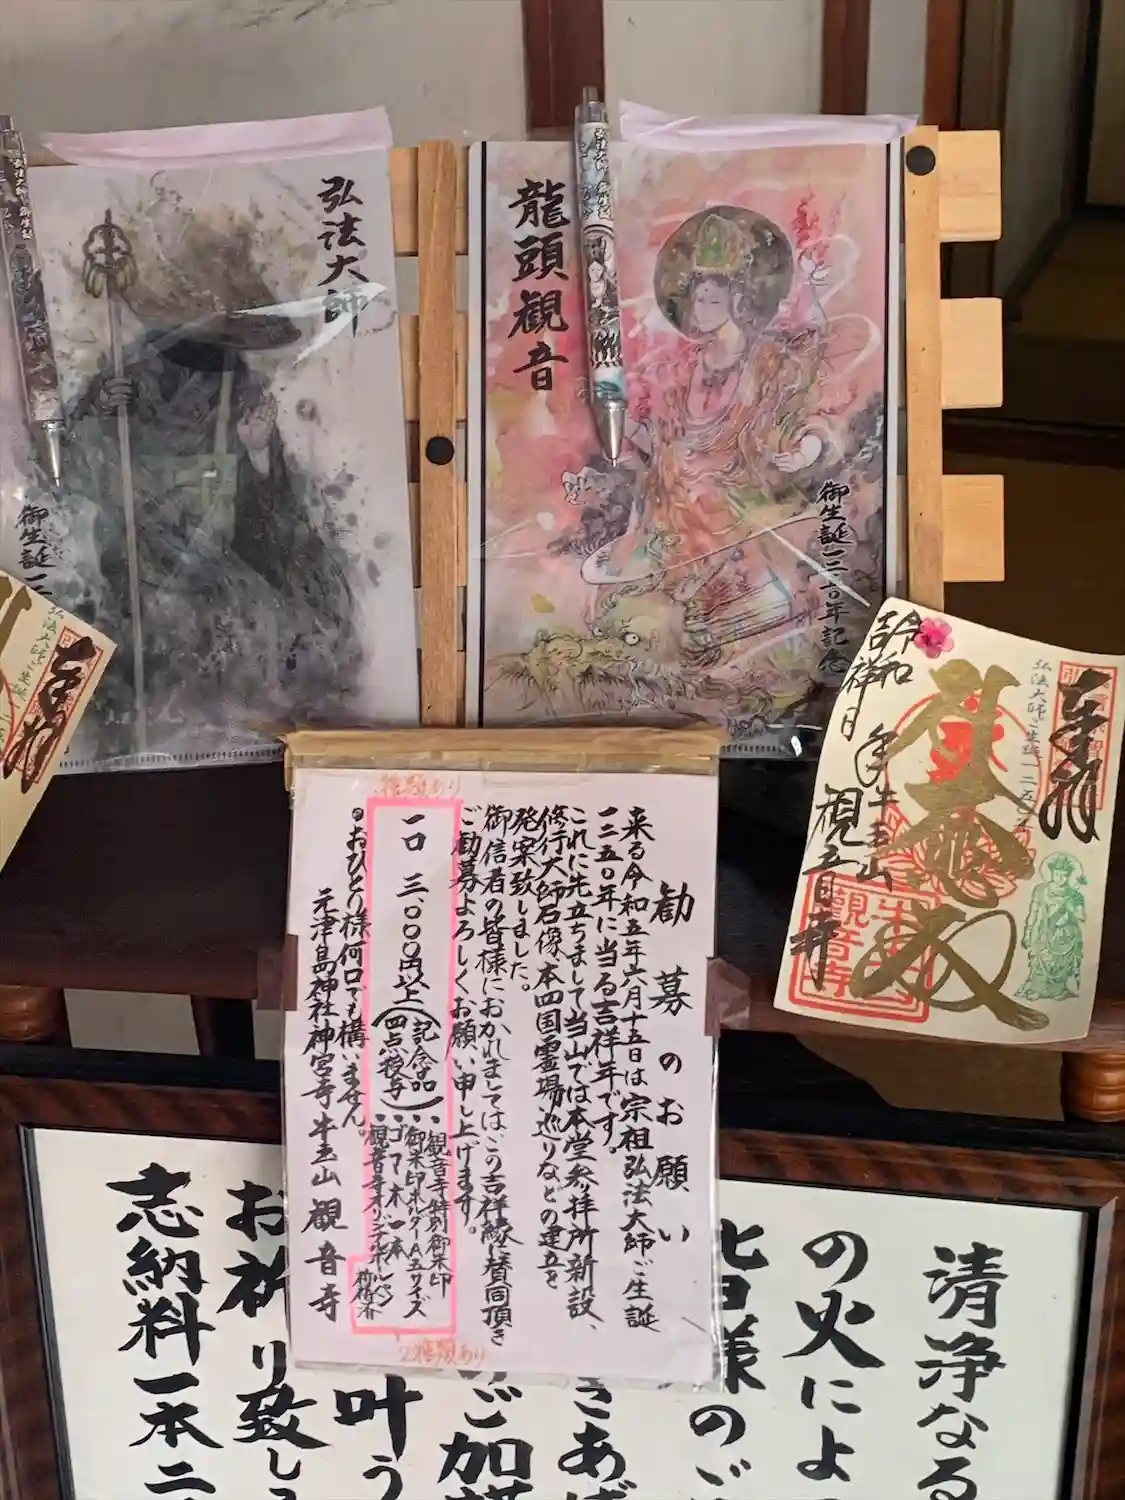 弘法大師
御生誕一二
龍頭観音
御生誕一二五〇年記念
奉拝
弘法大師ご生誕一二五〇年
令和 年
吉祥日
牛玉山
観音寺
勧募のお願い
来る令和五年六月十五日は宗祖弘法大師ご生誕
一二五〇年に当る吉祥年です。
これに先立ちまして当山では本堂参拝所新設、
修行大師石像、本四国霊場巡りなどの建立を
発案致しました。
御信者の皆様におかれましてはこの吉祥縁に賛同頂き
ご勧募よろしくお願い申し上げます。
種類あり
一口 三、000円以上(記念品四点授与)
・観音寺特別御朱印
・御朱印ホルダーA五サイズ
・ゴマ木一本
・観音寺オリジナルボールペン
祈祷済
2種類あり
●おひとり様何口でも構いません。
元津島神社神宮寺 牛玉山 観音寺
清浄なる
の火によ
皆様のご
きあげ
ご加護
叶う
お祈り致し
志納料一本二